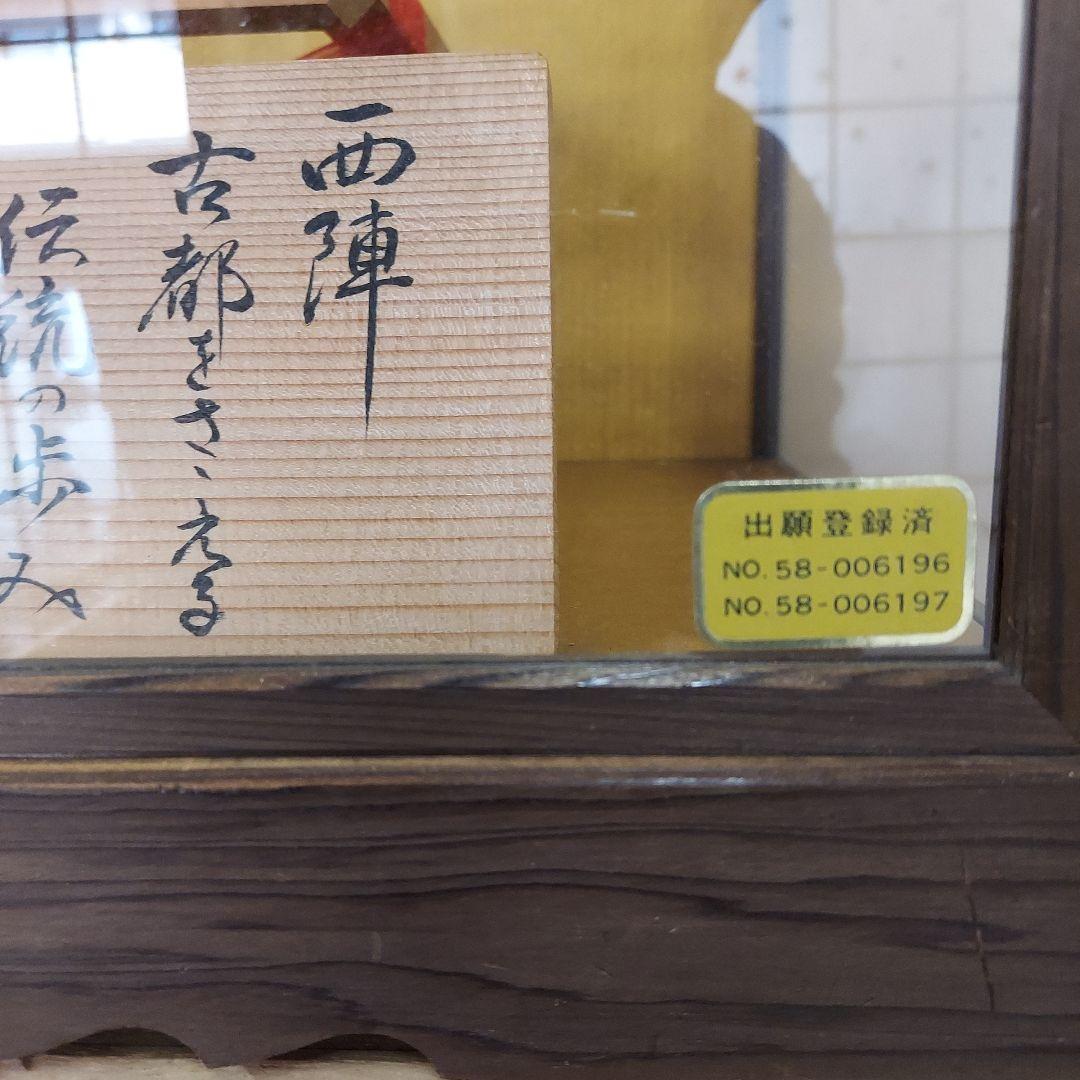 西陣
古都をさゝえる
伝統の歩み
出願登録済
NO. 58-006196
NO. 58-006197